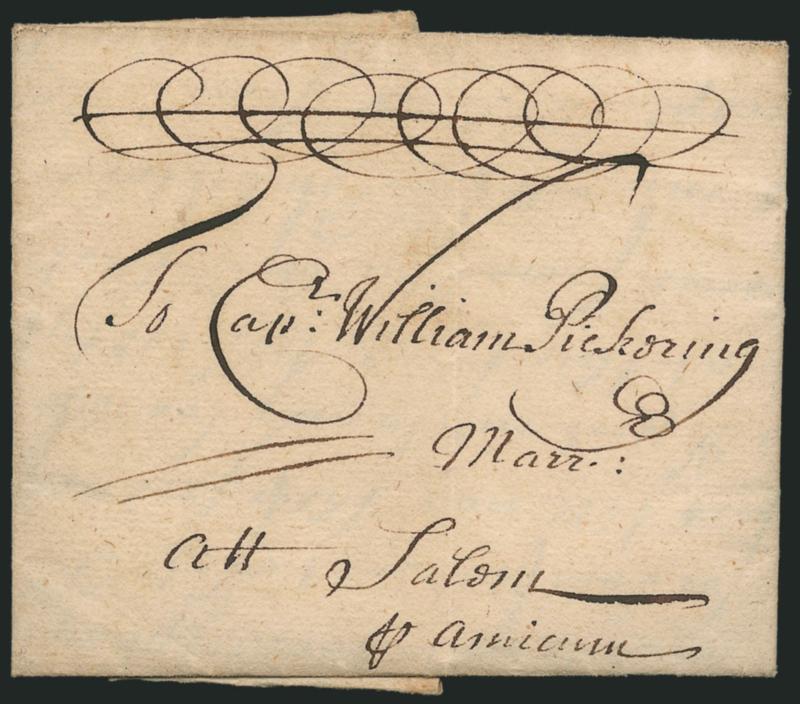 To Capt: William Pickering
Marr.:
Att Salem
⅌ amicum